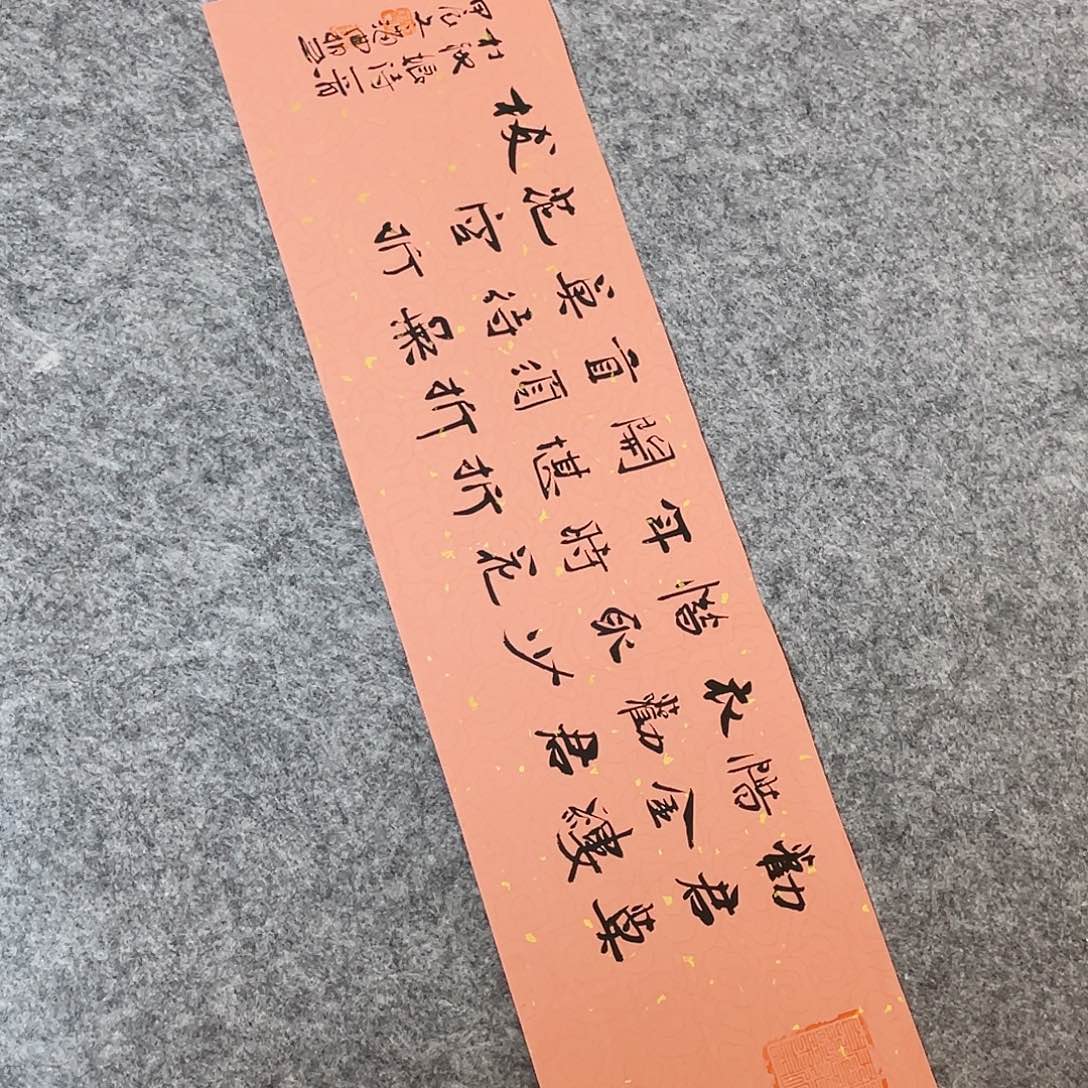 勸君莫
惜金縷
衣勸君
惜取少
年時花
開堪折
直須折
莫待無
花空折
枝
杜秋娘詩一首
甲辰